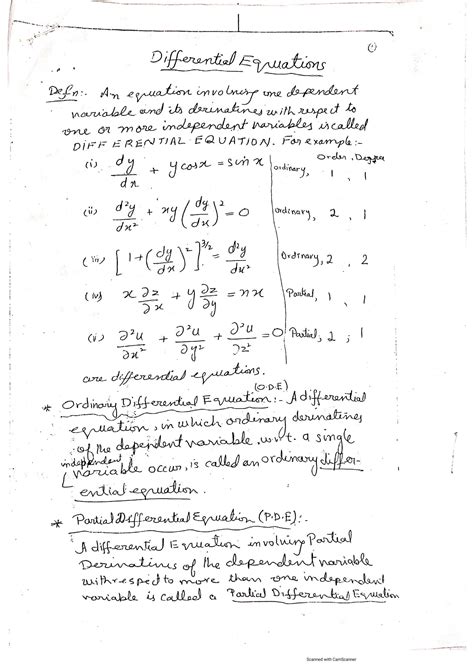 (1)
Differential Equations
Defn:- An equation involving one dependent
variable and its derivatives with respect to
one or more independent variables is called
DIFFERENTIAL EQUATION. For example:-
Order, Degree
(i) dy/dx + y cosx = sin x ordinary, 1, 1
(ii) d²y/dx² + xy (dy/dx)² = 0 ordinary, 2, 1
(iii) [1+(dy/dx)²]^3/2 = d²y/dx² Ordinary, 2, 2
(iv) x ∂z/∂x + y ∂z/∂y = nx Partial, 1, 1
(v) ∂²u/∂x² + ∂²u/∂y² + ∂²u/∂z² = 0 Partial, 2, 1
are differential equations.
* Ordinary Differential Equation (O.D.E) :- A differential
equation, in which ordinary derivatives
of the dependent variable, w.r.t. a single
independent
variable occur, is called an ordinary differ-
ential equation.
* Partial Differential Equation (P.D.E):-
A differential Equation involving Partial
Derivatives of the dependent variable
with respect to more than one independent
variable is called a Partial Differential Equation
Scanned with CamScanner